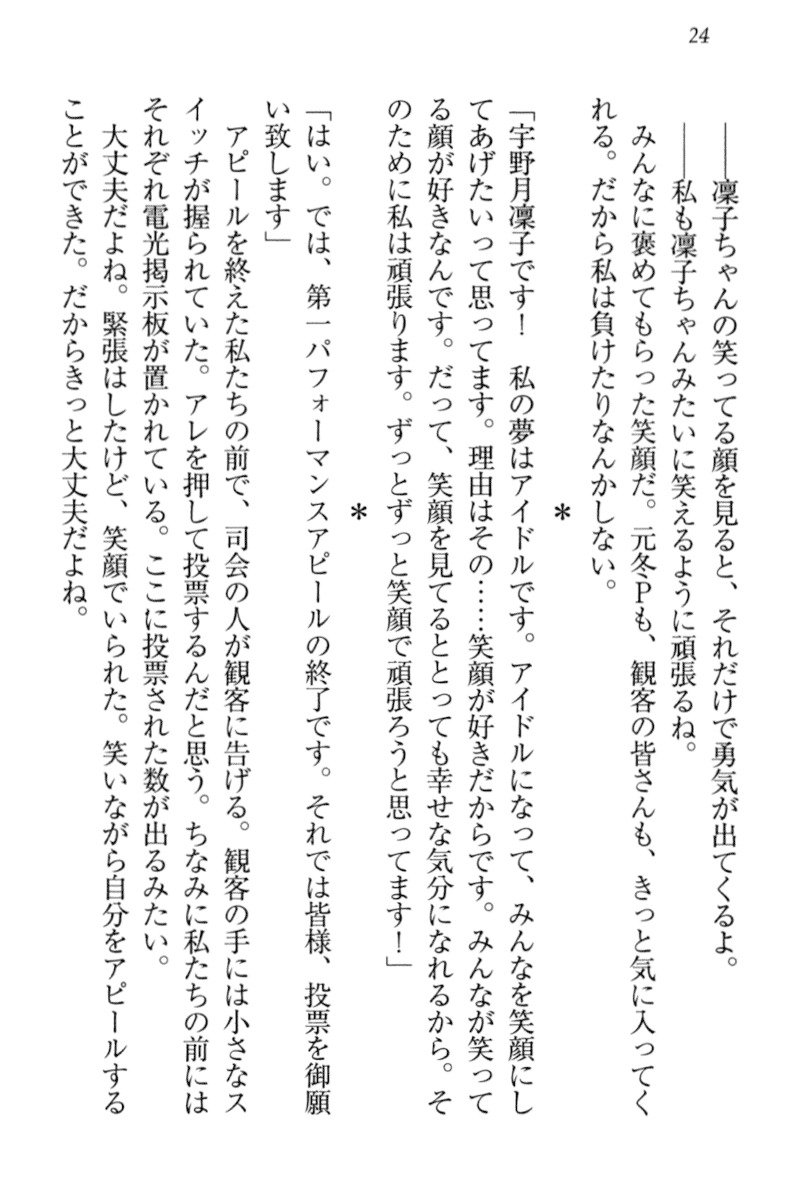 24
――凛子ちゃんの笑ってる顔を見ると、それだけで勇気が出てくるよ。
――私も凛子ちゃんみたいに笑えるように頑張るね。
みんなに褒めてもらった笑顔だ。元冬Pも、観客の皆さんも、きっと気に入ってく
れる。だから私は負けたりなんかしない。
＊
「宇野月凛子です！　私の夢はアイドルです。アイドルになって、みんなを笑顔にし
てあげたいって思ってます。理由はその……笑顔が好きだからです。みんなが笑って
る顔が好きなんです。だって、笑顔を見てるととっても幸せな気分になれるから。そ
のために私は頑張ります。ずっとずっと笑顔で頑張ろうと思ってます！」
＊
「はい。では、第一パフォーマンスアピールの終了です。それでは皆様、投票を御願
い致します」
アピールを終えた私たちの前で、司会の人が観客に告げる。観客の手には小さなス
イッチが握られていた。アレを押して投票するんだと思う。ちなみに私たちの前には
それぞれ電光掲示板が置かれている。ここに投票された数が出るみたい。
大丈夫だよね。緊張はしたけど、笑顔でいられた。笑いながら自分をアピールする
ことができた。だからきっと大丈夫だよね。